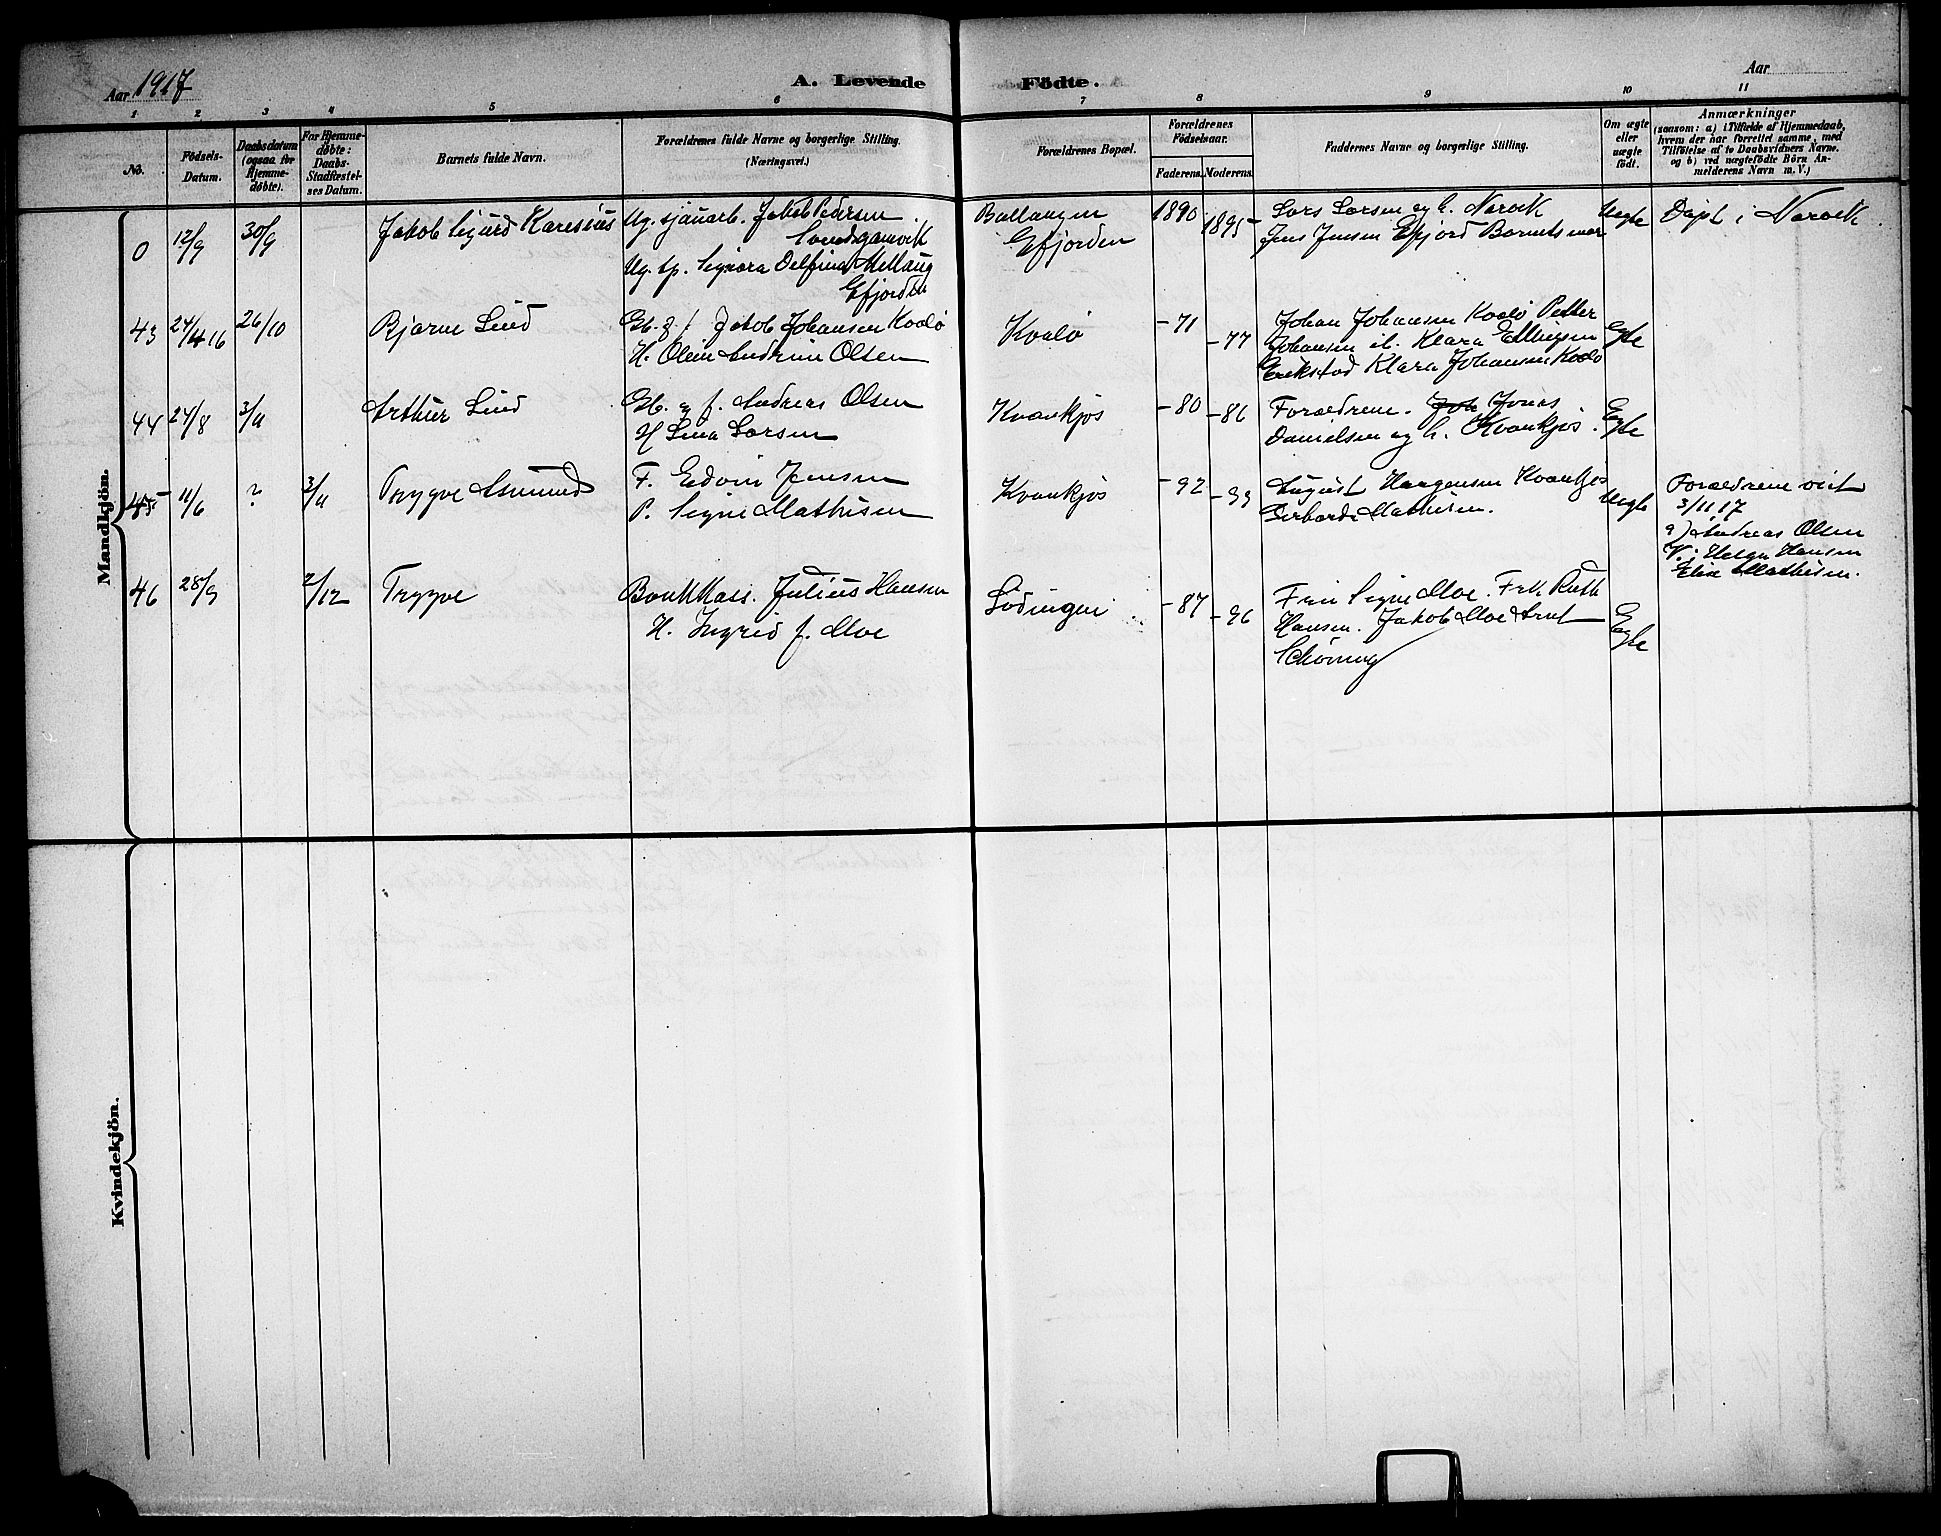 Aar 1917
A. Levende Födte.
Aar
1 2 3 4 5 6 7 8 9 10 11
No.
Födsels-
Datum.
Daabsdatum
(ogsaa for
Hjemme-
døbte).
For Hjemme-
døbte:
Daabs-
Stadfæstel-
ses Datum.
Barnets fulde Navn.
Forældrenes fulde Navne og borgerlige Stilling.
(Næringsvei.)
Forældrenes Bopæl.
Forældrenes
Födselsaar.
Faderens. Moderens.
Faddernes Navne og borgerlige Stilling.
Om ægte
eller
uægte
födt.
Anmærkninger
(saasom: a) i Tilfælde af Hjemmedaab,
hvem der har forrettet samme, med
Tilföielse af to Daabsvidners Navne.
og b) ved uægtefödte Börn An-
melderens Navn m. V.)
Mandkjön.
0 12/9 30/9 Jakob Sigurd Karesius
Ug. sjauarb. Jakob Pedersen
Ug. tp. Signora Delfina
Efjorden
Ballangen
Efjorden
1890 1895
Lars Larsen og h. Narvik
Jens Jensen Efjord Barnets mor
Uegte
Døpt i Narvik.
43 24/4 16 26/10 Bjarne Lind
Jakob Johansen Kvalø
H. Oline Andrine Olsen
Kvalø
-71 -77
Johan Johansen Kvalø Petter
Johansen ib. Klara
Erikstad Klara Johansen Kvalø
Egte
44 24/8 3/11 Arthur Lind
Gb. og f. Andreas Olsen
H Lina Larsen
Kvankjøs
-80 -86
Forældrene. Jonas
Danielsen og h. Kvankjøs.
Egte
45 11/6 ? 3/11 Trygve Asmund
F. Edvin Jensen
P. Signe Mathisen
Kvankjøs
-92 -99
August Hansen Kvankjøs
Mathisen.
Uegte
Forældrene viet
3/11 17
a) Andreas Olsen
V: Helga Hansen
Elise Mathisen.
46 28/9 2/12 Trygve
Bankkass. Julius Hansen
H. Ingrid f. Moe
Lødingen
-87 -96
Fru Signe Moe. Frk. Ruth
Hansen. Jakob Moe Arnt
Schøning
Egte
Kvindekjön.